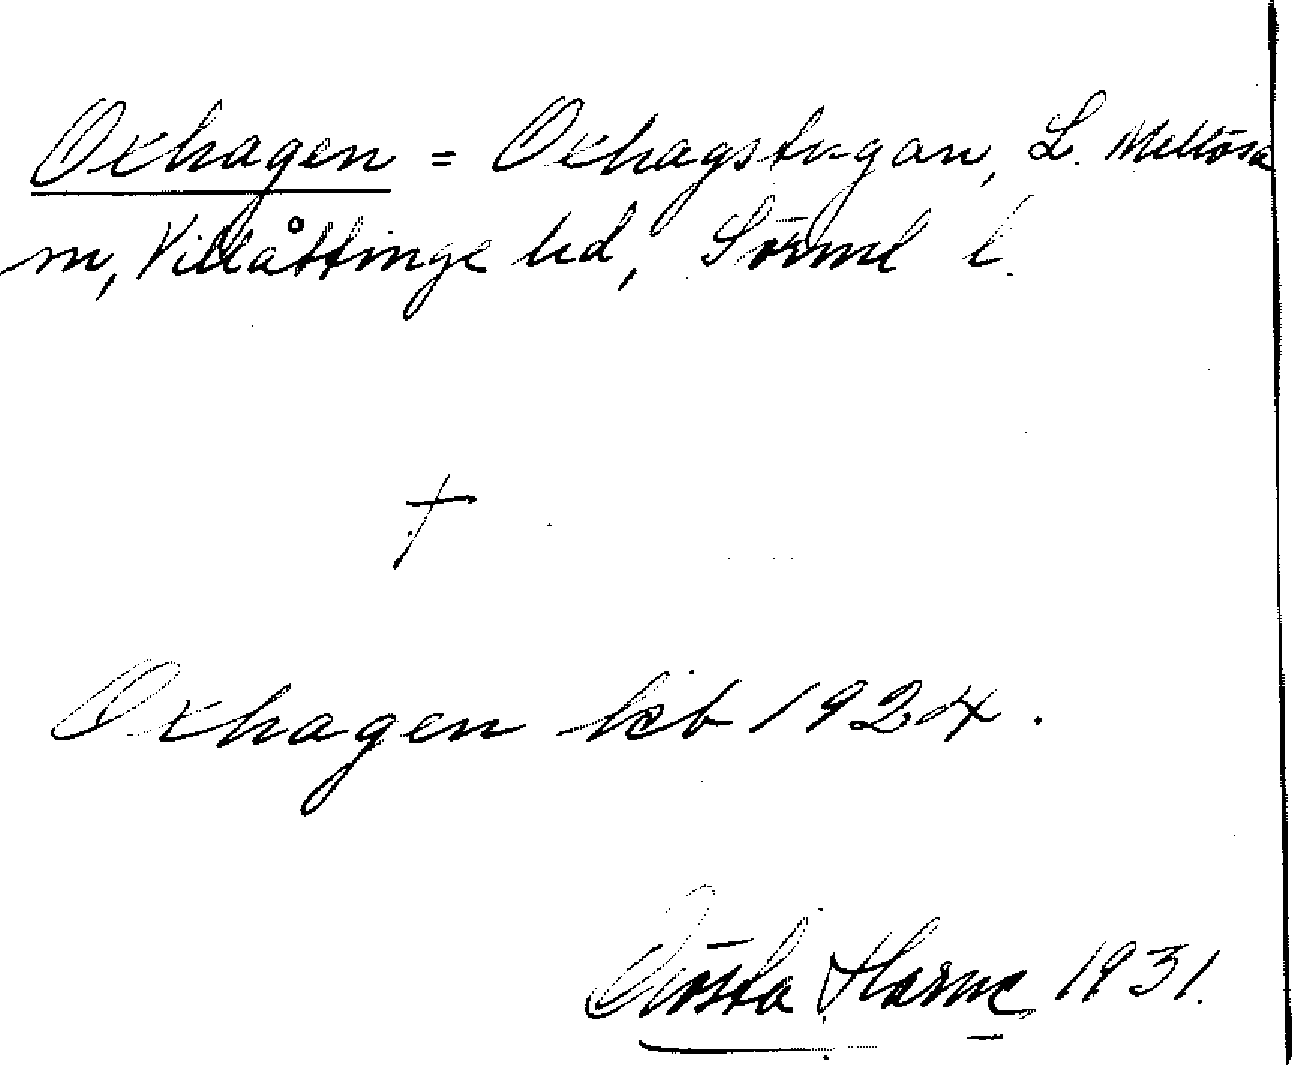 Oxhagen = Oxhagstugan, L. Mellösa
sn, Villåttinge hd, Sörml l.
†
Oxhagen kb 1924.
Gösta 1931.